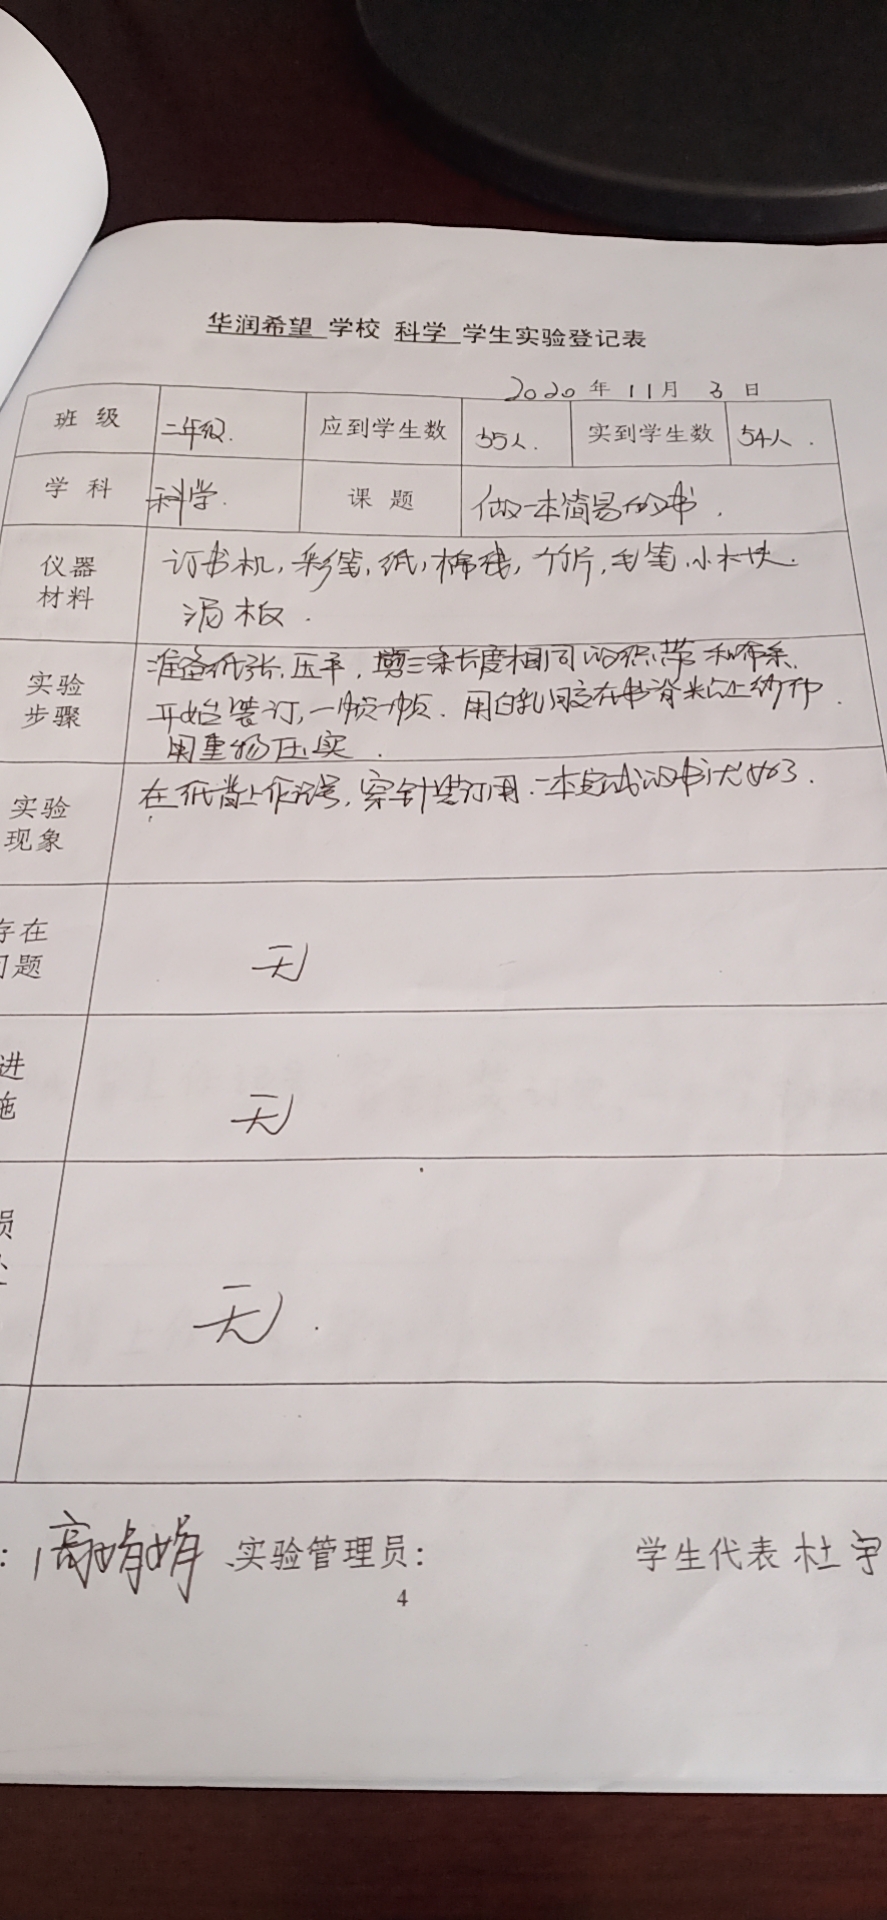 华润希望 学校 科学 学生实验登记表
2020 年 11 月 3 日
班 级 二年级. 应到学生数 55人. 实到学生数 54人.
学 科 科学. 课 题 做一本简易的书.
仪器 订书机,彩笔,纸,棉线,竹片,毛笔.小木块.
材料 木板.
准备纸张.压平,剪三条长度相同的织带和布条.
实验 开始装订,一帧一帧.用白乳胶在书脊
步骤 用重物压实.
实验 在纸背上作记号,穿针装订用.一本完成的书就好了.
现象
存在
问题 无
进
施 无
损
无.
: 高娟娟 实验管理员: 学生代表 杜宇
4